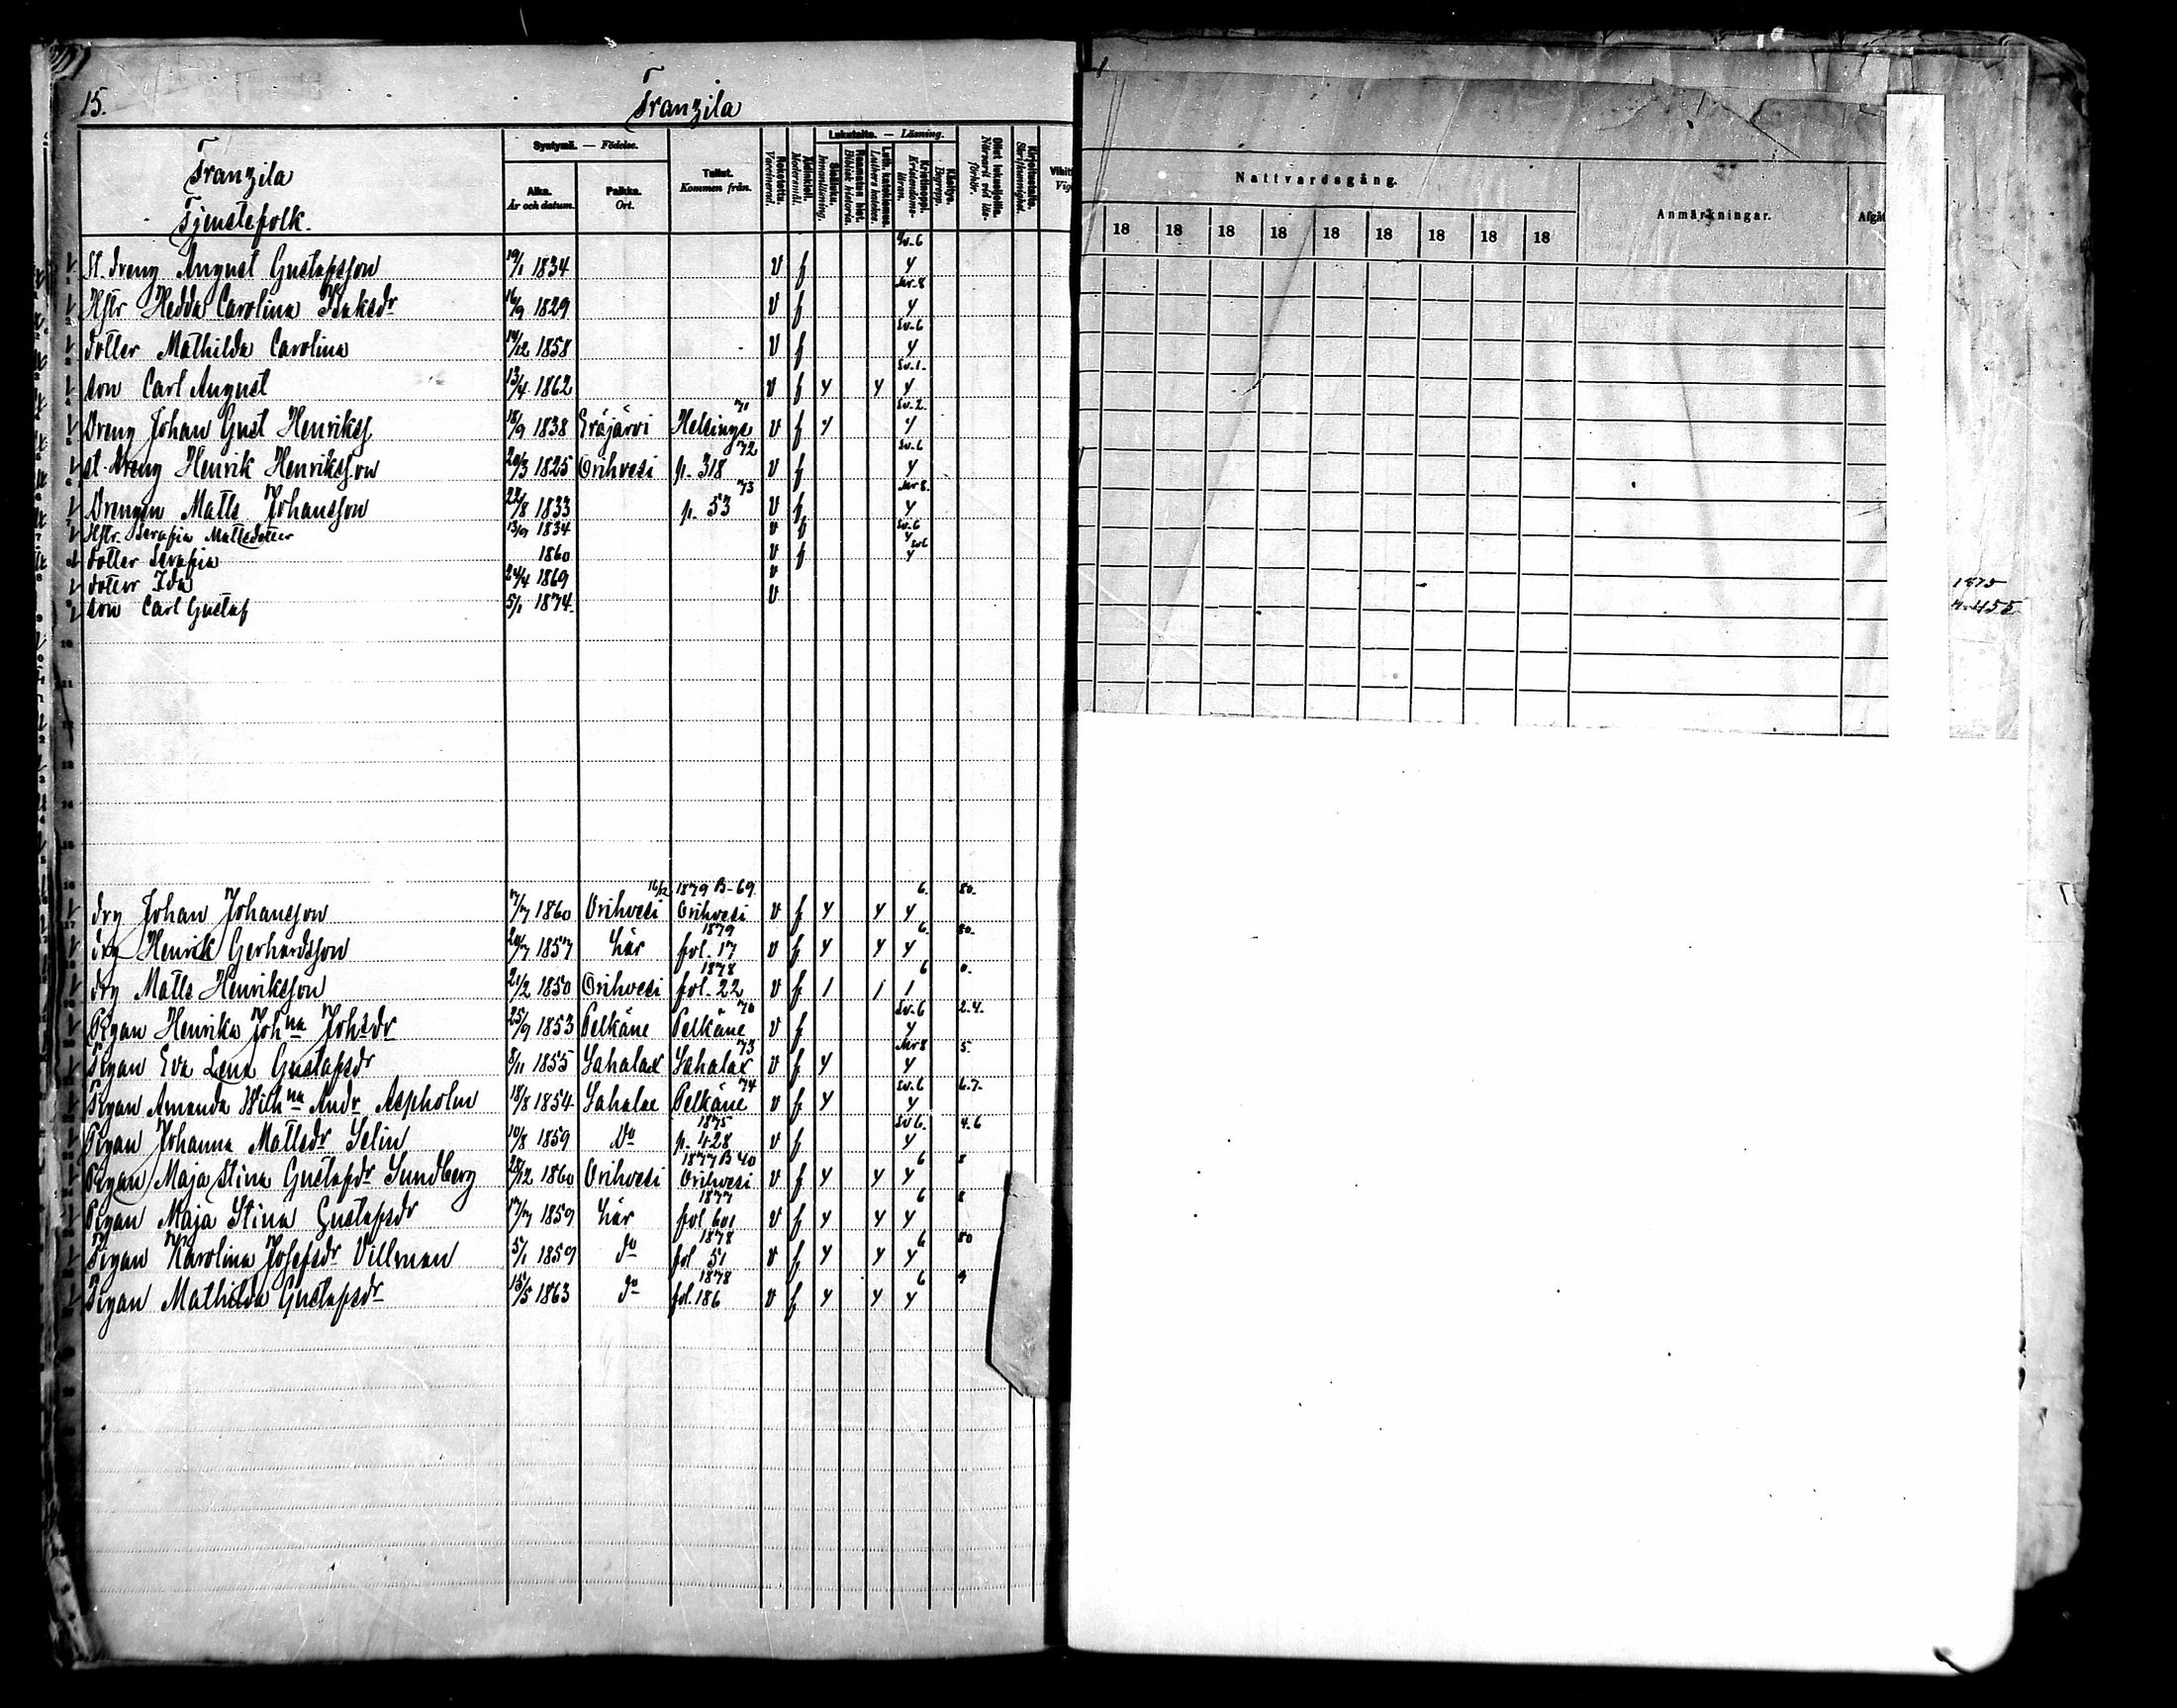 15.
Franzila
Franzila
Tjenstefolk.
Syntymä. — Födelse.
Aika. År och datum.
Paikka. Ort.
Tullut. Kommen från.
Rokotettu. Vaccinerad.
Äidinkieli. Modersmål.
Lukutaito. — Läsning.
Sisäluku. Innanläsning.
Raamatun hist. Biblisk historia.
Luth. katekismus. Luthers katekes.
Kristinoppi. Kristendomsläran.
Käsitys. Begrepp.
Ollut lukusijoilla. Närvarit vid läsförhör.
Kirjoitustaito. Skrifkunnighet.
Nattvardsgång.
18 18 18 18 18 18 18 18 18
Anmärkningar.
St. dreng August Gustafsson 19/1 1834 v f Sv. 6 y
Hstr Hedda Carolina Isaksdr 16/9 1829 v f y
dotter Mathilda Carolina 14/12 1858 v f Sv. 6 y
son Carl August 13/4 1862 v f y y Sv. 1. y
Dreng Johan Gust Henrikss 18/9 1838 Eräjärvi Helsinge 71 v f y Sv. 2. y
st. dreng Henrik Henriksson 20/3 1825 Orihvesi p. 318 72 v f Sv. 6 y
Drengen Matts Johansson 22/8 1833 p. 53 73 v f y
Hstr. Serafia Mattsdotter 13/9 1834 v f Sv. 6 y
dotter Serafia 1860 v f y
dotter Ida 24/4 1869 v
son Carl Gustaf 5/1 1874 v
1875
drg Johan Johansson 7/7 1860 Orihvesi 16/12 1879 B-69. Orihvesi v f y y 6. y 80.
drg Henrik Gerhardsson 20/7 1857 här 1879 fol. 17 v f y y 6. y 80.
drg Matts Henriksson 21/2 1850 Orihvesi 1878 fol. 22 v f / / 6 / 0.
Pigan Henrika Johna Johsdr 25/9 1853 Pelkäne Pelkäne 70 v f Sv. 6 y 2.4.
Pigan Eva Lena Gustafsdr 8/11 1855 Sahalax Sahalax 73 v f y y 5.
Pigan Amanda Wilhna Andr Aspholm 18/8 1854 Sahalax Pelkäne 74 v f y Sv. 6 y 6.7.
Pigan Johanna Mattsdr Selin 10/8 1859 Do 1875 p. 428 v f Sv 6. y 4.6
Pigan Maja Stina Gustafsdr Sundberg 28/12 1860 Orihvesi 1877 B 40 Orihvesi v f y y 6 y 8
Pigan Maja Stina Gustafsdr 17/7 1859 här 1877 fol 601 v f y y 6 y 8
Pigan Karolina Josefsdr Villman 5/1 1859 do 1878 fol 51 v f y y 6 y 80
Pigan Mathilda Gustafsdr 15/5 1863 do 1878 fol. 186 v f y y 6 y 9